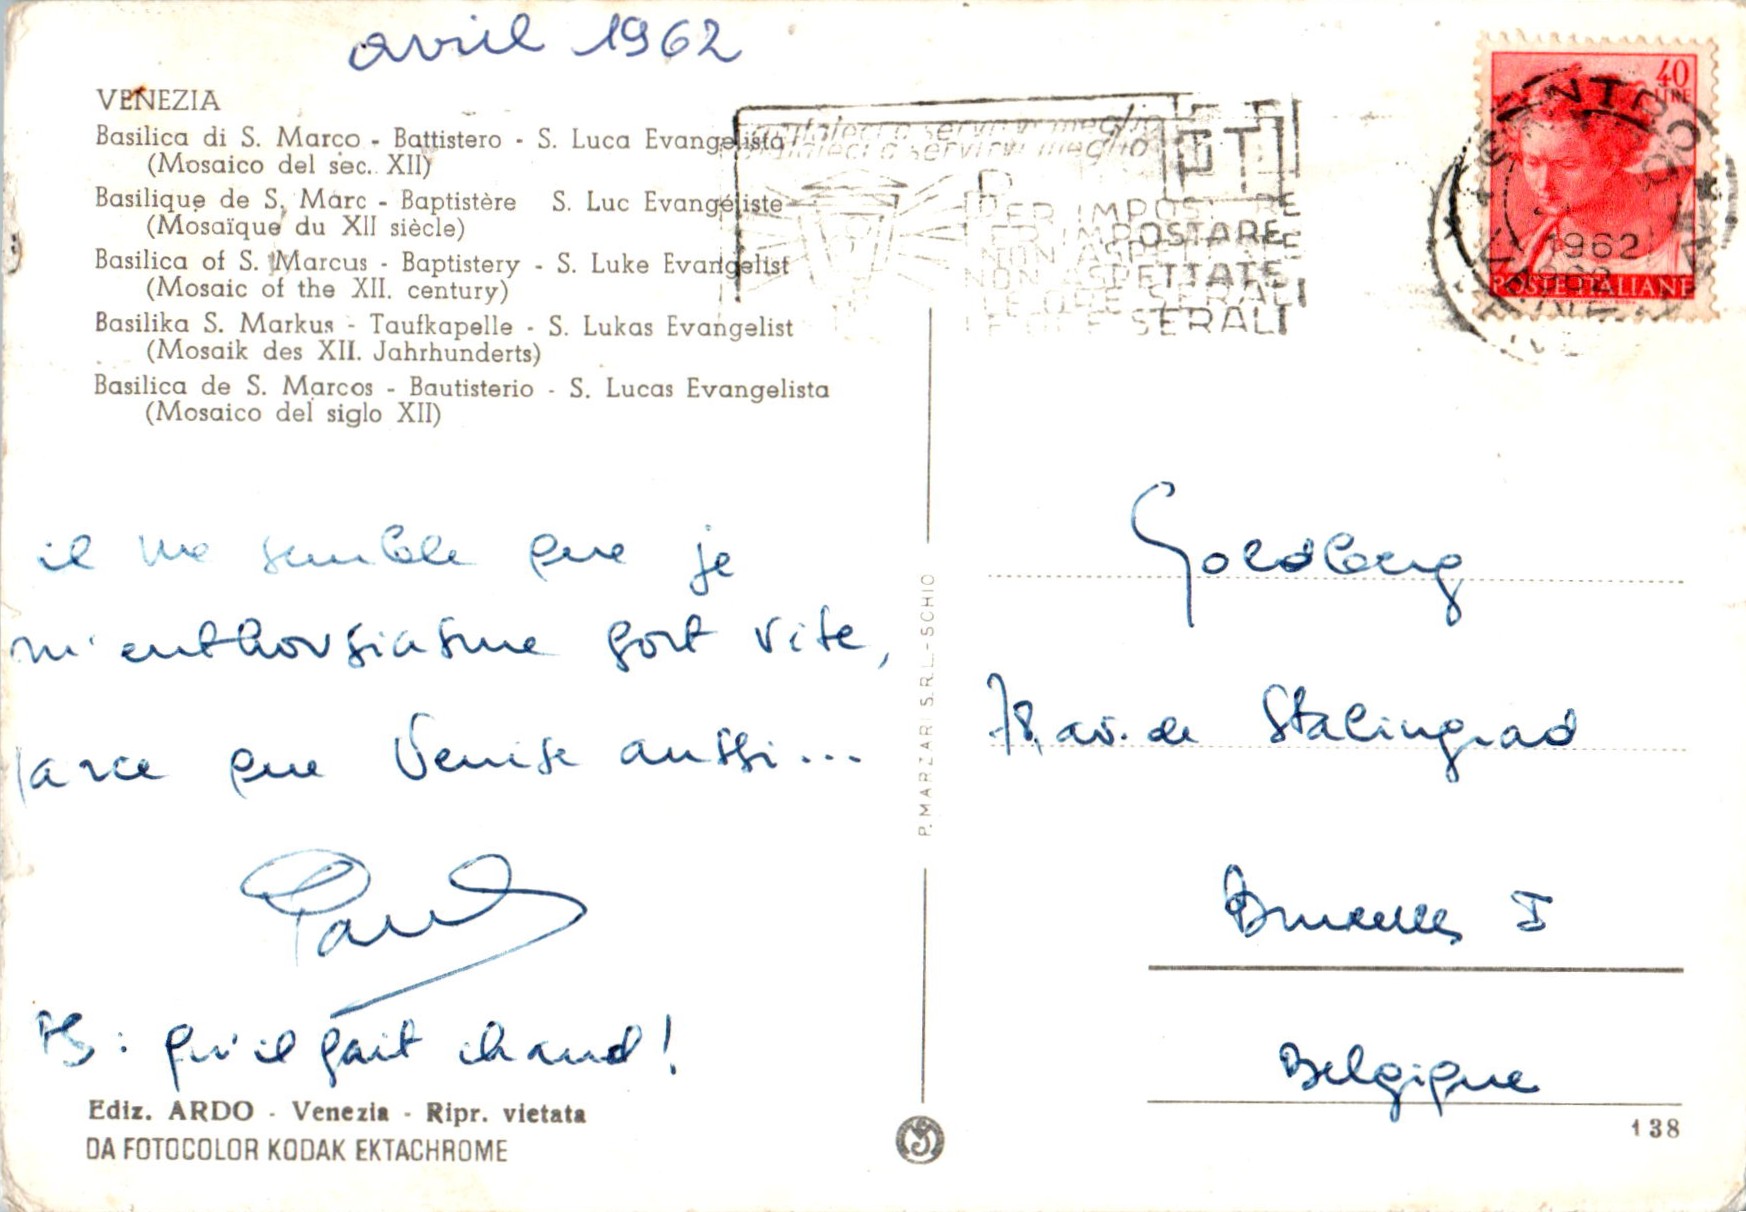 avril 1962
VENEZIA
Basilica di S. Marco - Battistero - S. Luca Evangelista
(Mosaico del sec. XII)
Basilique de S. Marc - Baptistère S. Luc Evangéliste
(Mosaïque du XII siècle)
Basilica of S. Marcus - Baptistery - S. Luke Evangelist
(Mosaic of the XII. century)
Basilika S. Markus - Taufkapelle - S. Lukas Evangelist
(Mosaik des XII. Jahrhunderts)
Basilica de S. Marcos - Bautisterio - S. Lucas Evangelista
(Mosaico del siglo XII)
servirvi meglio
PER IMPOSTARE
NON ASPETTATE
LE ORE SERALI
40
LIRE
1962
POSTE ITALIANE
il me semble que je
m'enthousiasme fort vite,
parce que Venise aussi...
PS : qu'il fait chaud !
Ediz. ARDO - Venezia - Ripr. vietata
DA FOTOCOLOR KODAK EKTACHROME
P. MARZARI S.R.L. - SCHIO
Goldberg
78, av. de Stalingrad
Bruxelles I
Belgique
138